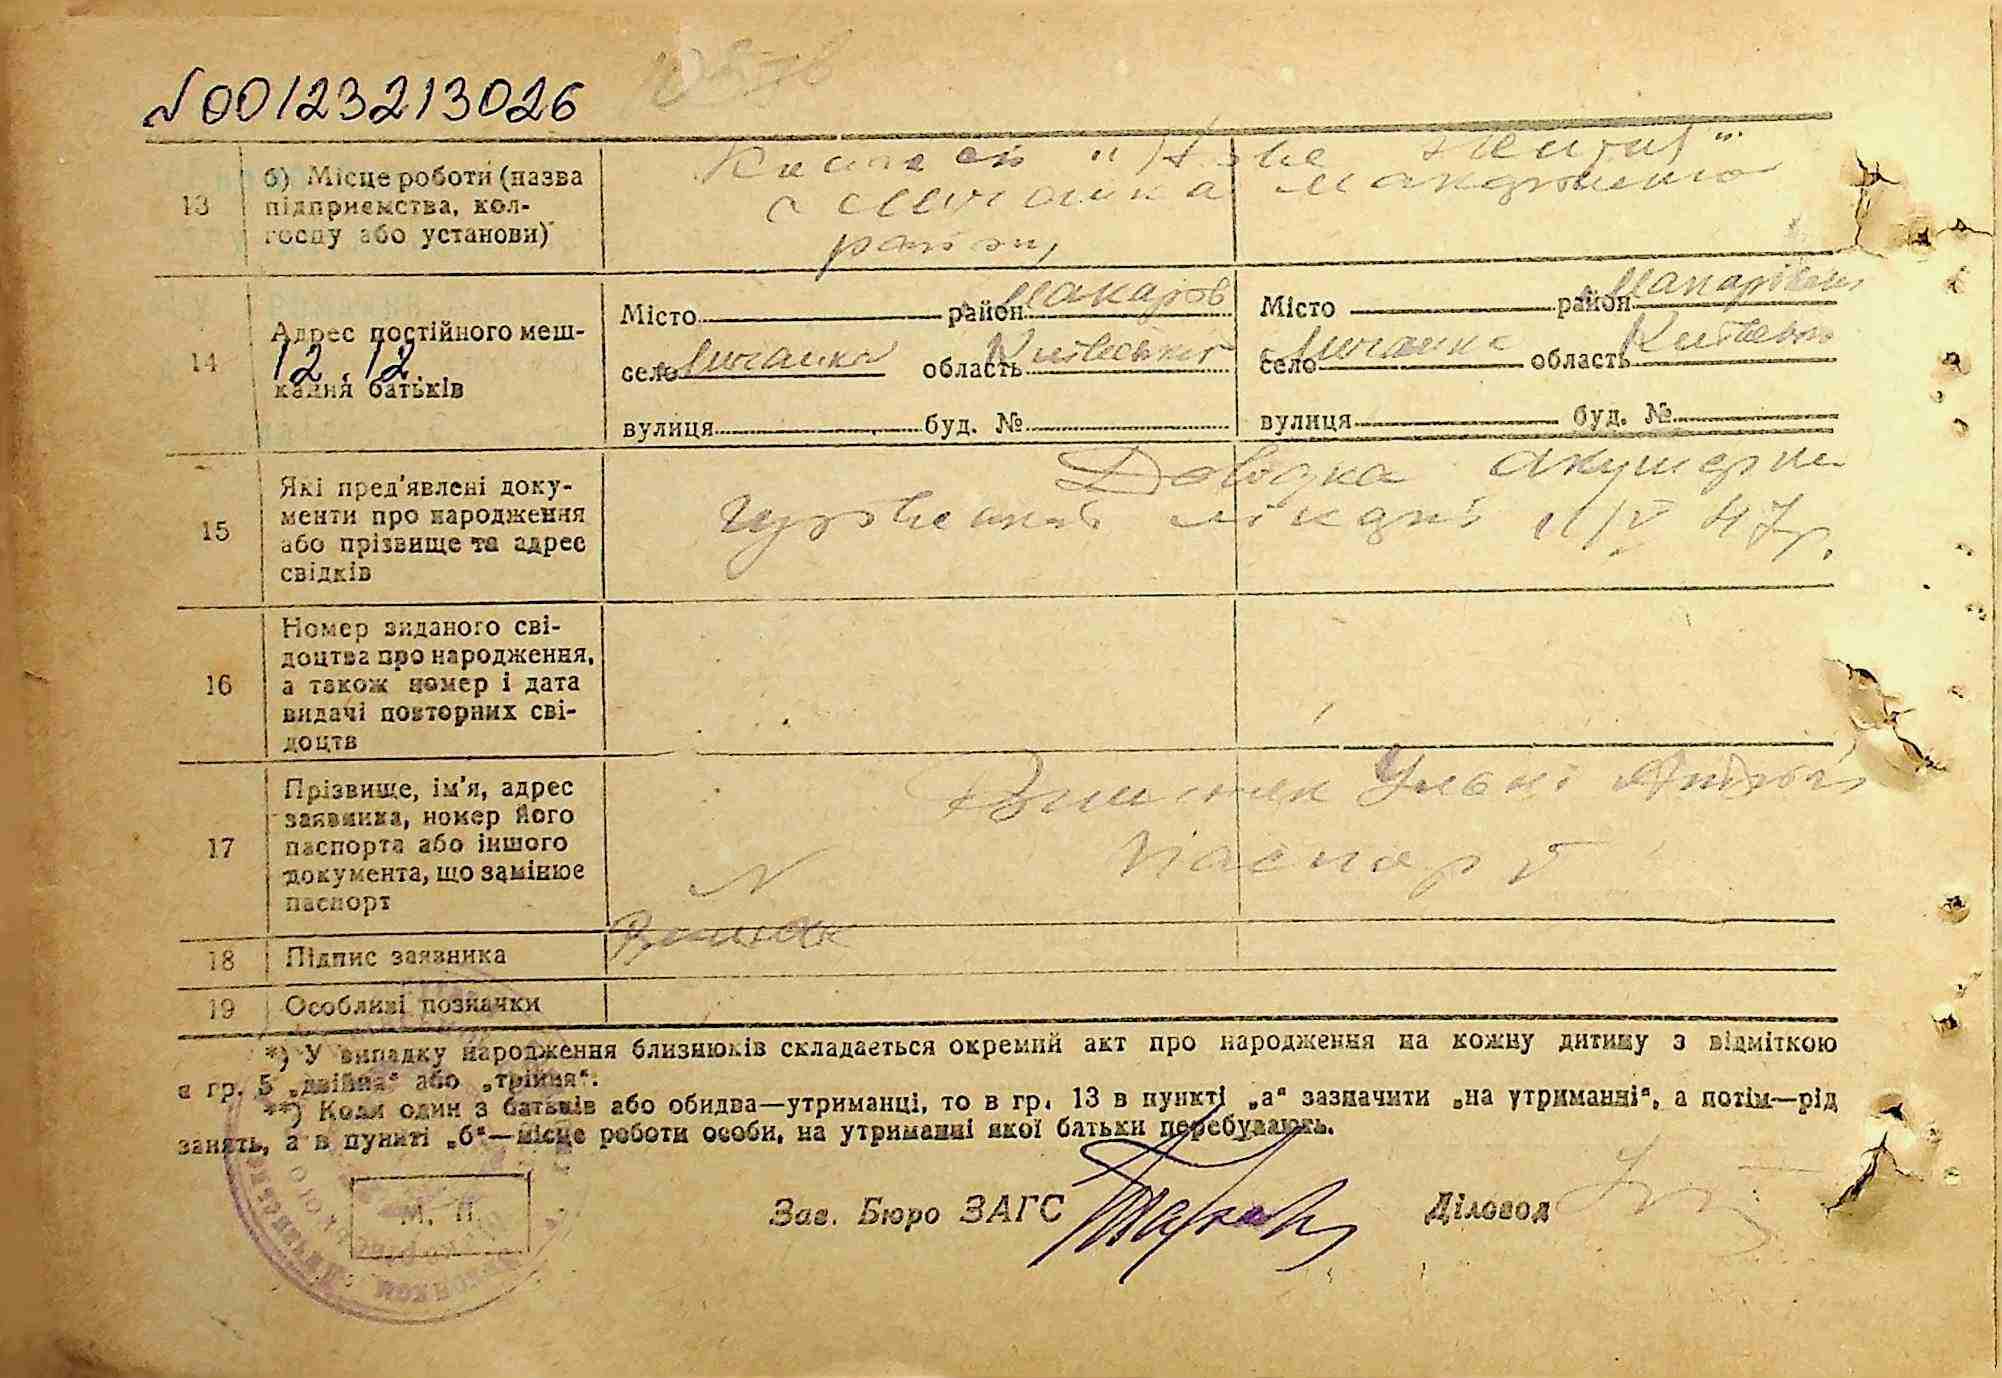 №00123213026
13
б) Місце роботи (назва
підприємства, кол-
госпу або установи)
"Нове життя"
с Личанка Макарівського
району
14
Адрес постійного меш-
12.12.
кання батьків
Місто район Макарів
село Личанка область Київська
вулиця буд. №
Місто район Макарівськ
село Личанка область Київська
вулиця буд. №
15
Які пред'явлені доку-
менти про народження
або прізвище та адрес
свідків
Довідка акушерки
лікарні 11/V 47р.
16
Номер виданого сві-
доцтва про народження,
а також номер і дата
видачі повторних сві-
доцтв
17
Прізвище, ім'я, адрес
заявника, номер його
паспорта або іншого
документа, що замінює
паспорт
паспорт
№
18
Підпис заявника
19
Особливі позначки
*) У випадку народження близнюків складається окремий акт про народження на кожну дитину з відміткою
в гр. 5 „двійня“ або „трійня“.
**) Коли один з батьків або обидва—утриманці, то в гр. 13 в пункті „а“ зазначити „на утриманні“, а потім—рід
занять, а в пункті „б“—місце роботи особи, на утриманні якої батьки перебувають.
М. П.
Зав. Бюро ЗАГС
Діловод